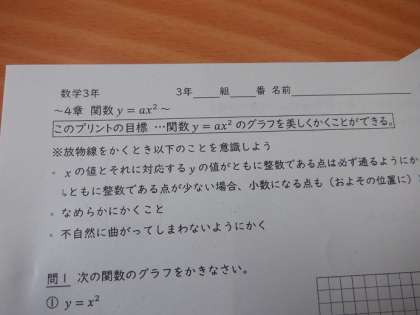 数学3年 3年 組 番 名前
～4章 関数 y = ax² ～
このプリントの目標 …関数 y = ax² のグラフを美しくかくことができる。
※放物線をかくとき以下のことを意識しよう
・ x の値とそれに対応する y の値がともに整数である点は必ず通るようにか
↳ともに整数である点が少ない場合、小数になる点も（およその位置に）
・ なめらかにかくこと
・ 不自然に曲がってしまわないようにかく
問1 次の関数のグラフをかきなさい。
① y = x²